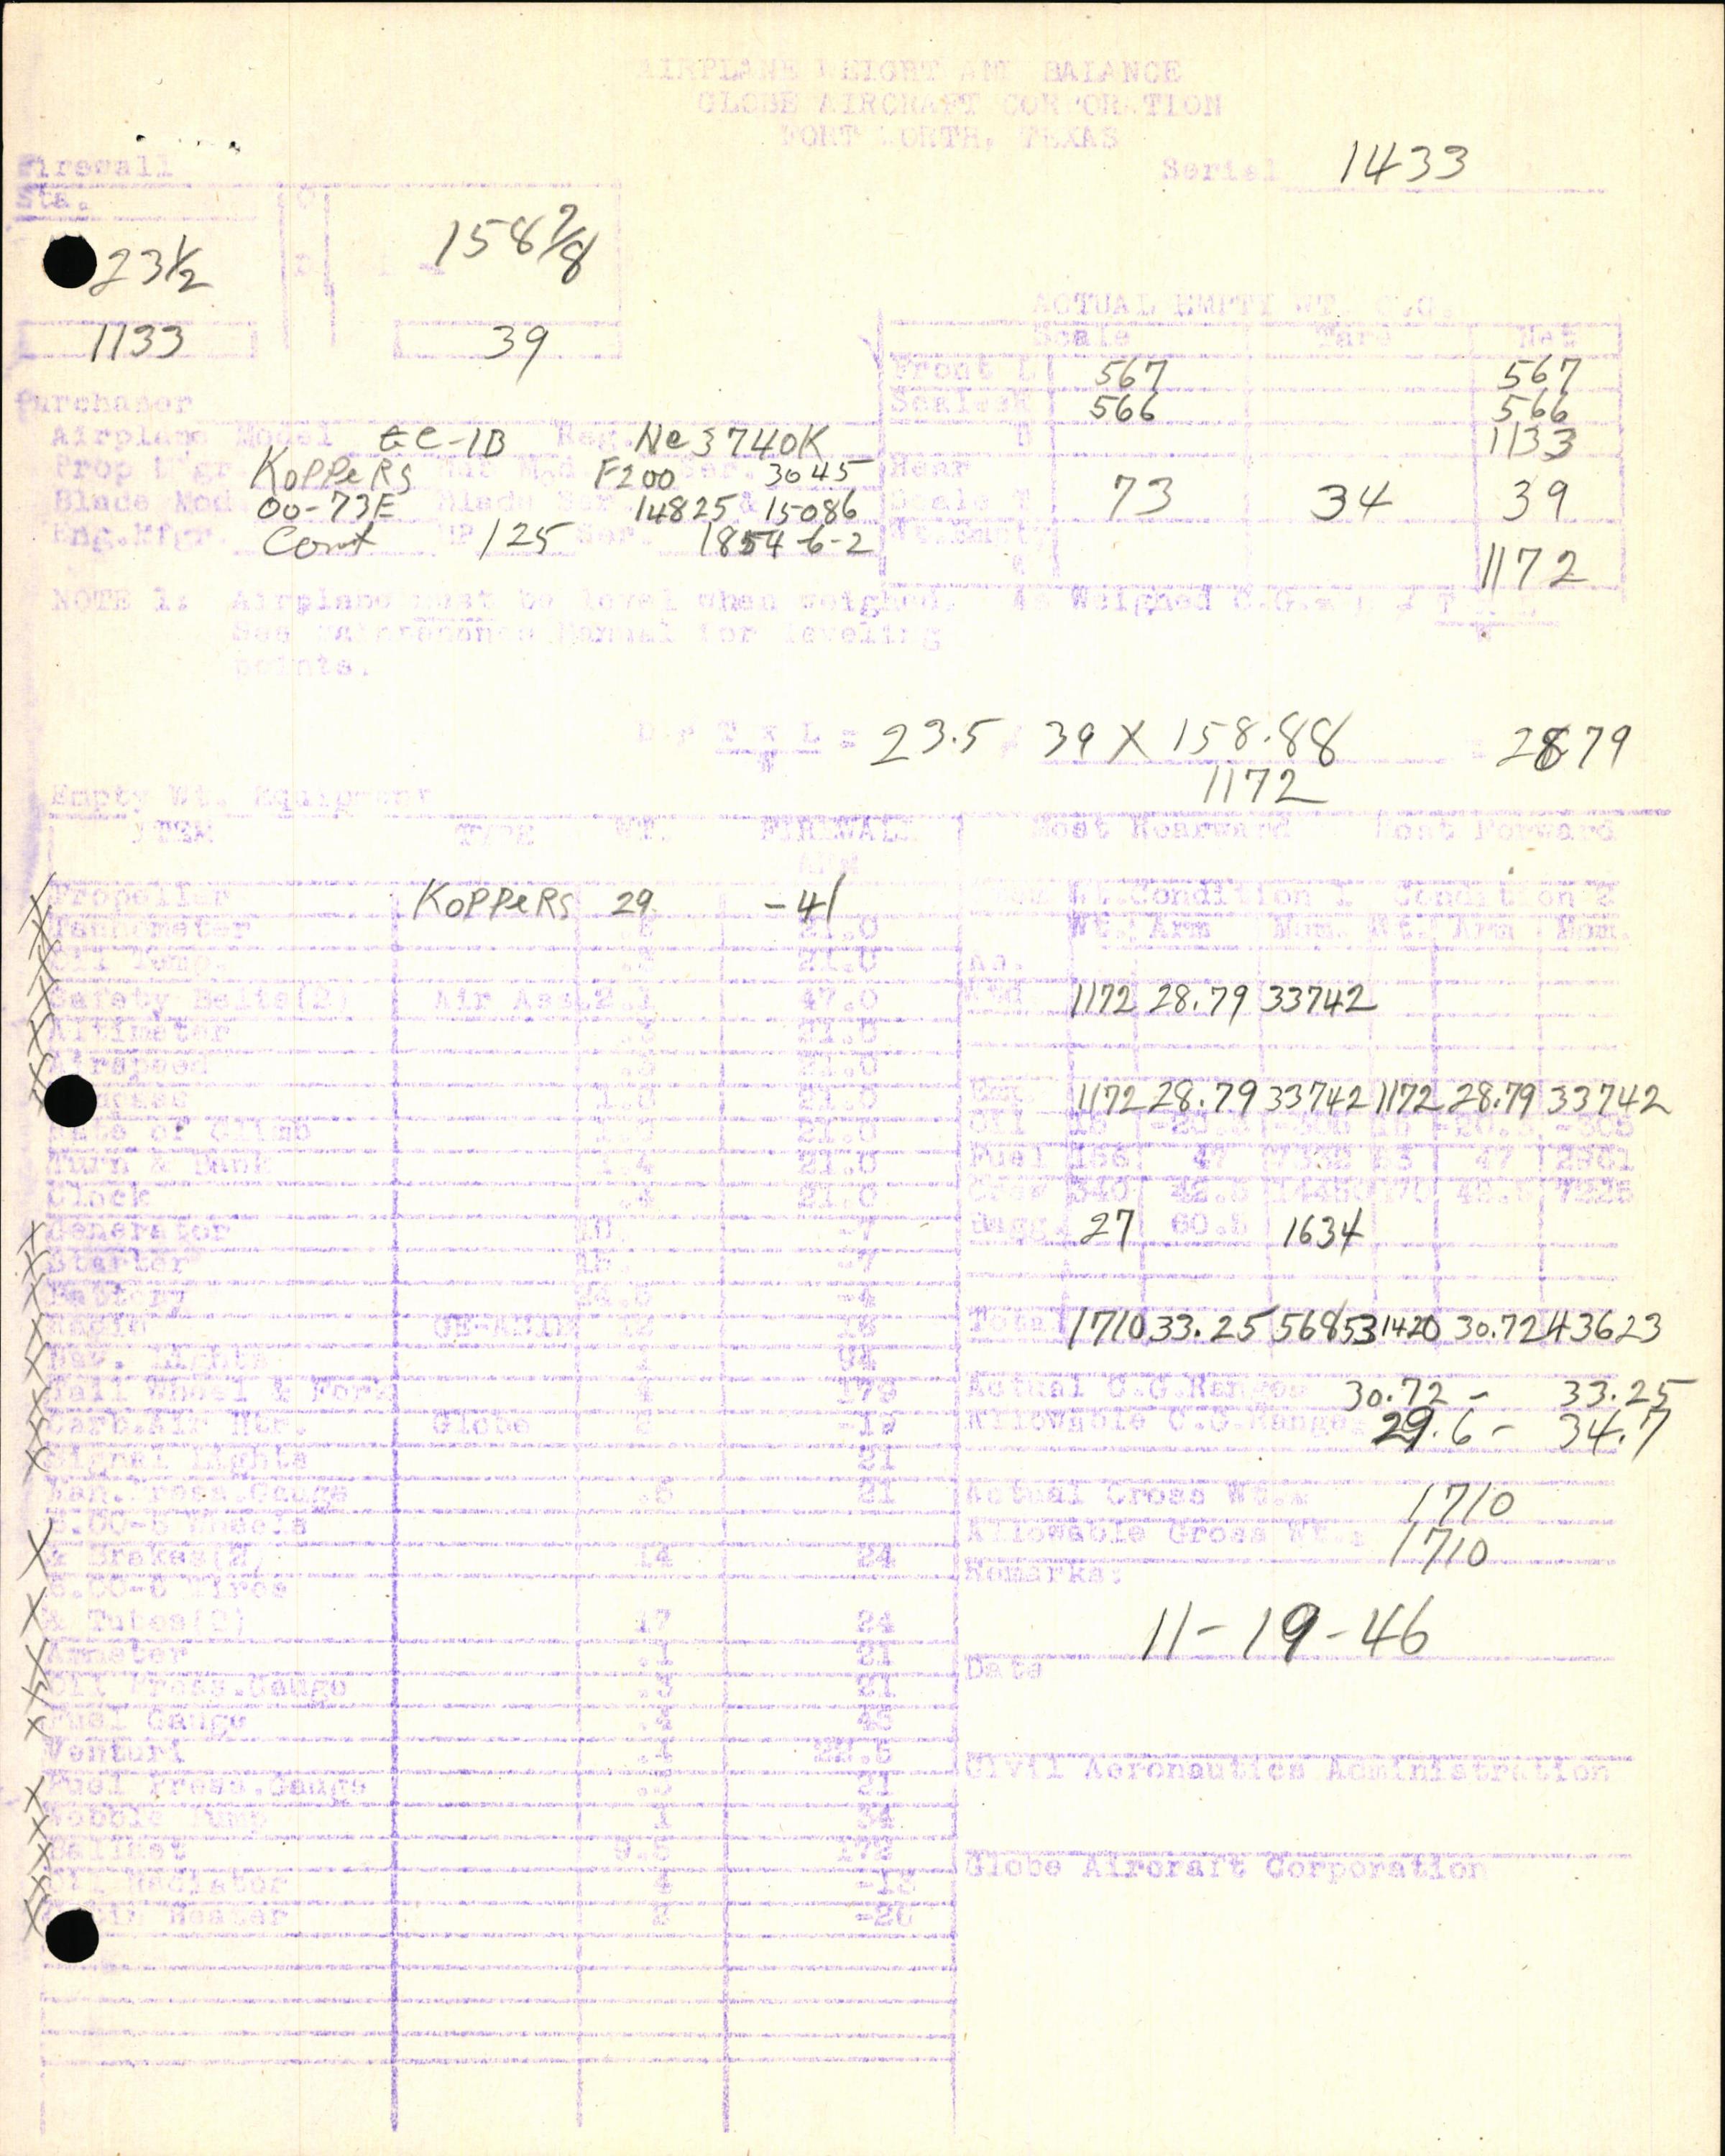 AIRPLANE WEIGHT AND BALANCE
GLOBE AIRCRAFT CORPORATION
FORT WORTH, TEXAS
Serial 1433
Firewall
Sta.
23 1/2
158 7/8
1133
39
ACTUAL EMPTY WT. C.G.
Scale Tare Net
Front L 567 567
Scales R 566 566
1133
Rear
Scale T 73 34 39
Wt. Empty
1172
Purchaser
Airplane Model GC-1B Reg. NC 3740K
Prop Mfgr. KOPPERS F200 3045
Blade Mod. 00-73E Blade Ser. 14825 & 15086
Eng.Mfgr. Cont HP 125 Ser. 1854-6-2
NOTE 1: Airplane must be level when weighed.
See Maintenance Manual for leveling
points.
As Weighed C.G.=
T x L = 23.5 39 X 158.88 = 2879
1172
Empty Wt. Equipment
ITEM TYPE WT. FIREWALL ARM
Propeller KOPPERS 29 -41
Tachometer 21.0
Oil Temp. 21.0
Safety Belts(2) Air Ass. 47.0
Altimeter 21.0
Airspeed 21.0
1.0 21.0
Rate of Climb 21.0
Turn & Bank 1.4 21.0
Clock .4 21.0
Generator 10. -7
Starter -7
Battery
Radio 12 18
Nav. Lights 1
Tail Wheel & Fork
Carb.Air Htr. Globe
Signal Lights 21
Man.Press.Gauge .5 21
6.00-6 Wheels
& Brakes(2) 14 24
6.00-6 Tires
& Tubes(2) 17 24
Ammeter .1 21
Oil Press.Gauge .3 21
Fuel Gauge .4
Venturi .4 22.5
Fuel Press.Gauge 21
Wobble Pump 1 34
Ballast 9.5 172
Oil Radiator 4
Cabin Heater 2 -20
Most Rearward Most Forward
Wt.Condition 1 Condition 2
Wt. Arm Mom. Wt. Arm Mom.
1172 28.79 33742
1172 28.79 33742 1172 28.79 33742
Oil
Fuel 156 47 47
Crew 340
Bagg. 27 60.5 1634
Total 1710 33.25 56853 1420 30.72 43623
Actual C.G.Range= 30.72 - 33.25
Allowable C.G.Range 29.6 - 34.7
Actual Gross Wt.= 1710
Allowable Gross Wt.= 1710
Remarks:
11-19-46
Date
Civil Aeronautics Administration
Globe Aircraft Corporation